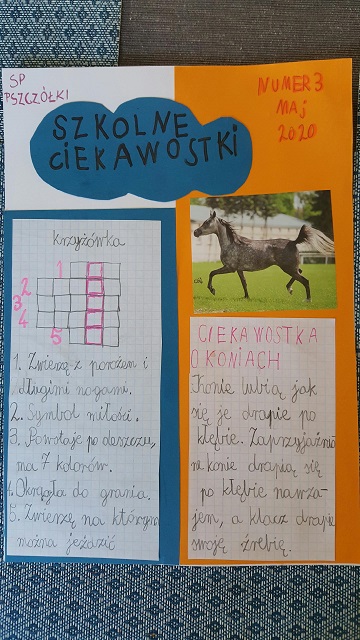 SP
PSZCZÓŁKI
NUMER 3
MAJ
2020
SZKOLNE
CIEKAWOSTKI
Krzyżówka
1
2
3
4
5
1. Zwierzę z porożem i
długimi nogami.
2. Symbol miłości.
3. Powstaje po deszczu,
ma 7 kolorów.
4. Okrągła do grania.
5. Zwierzę na którym
można jeździć
CIEKAWOSTKA
O KONIACH
Konie lubią jak
się je drapie po
kłębie. Zaprzyjaźnio
ne konie drapią się
po kłębie nawza-
jem, a klacz drapie
swoje źrebię.